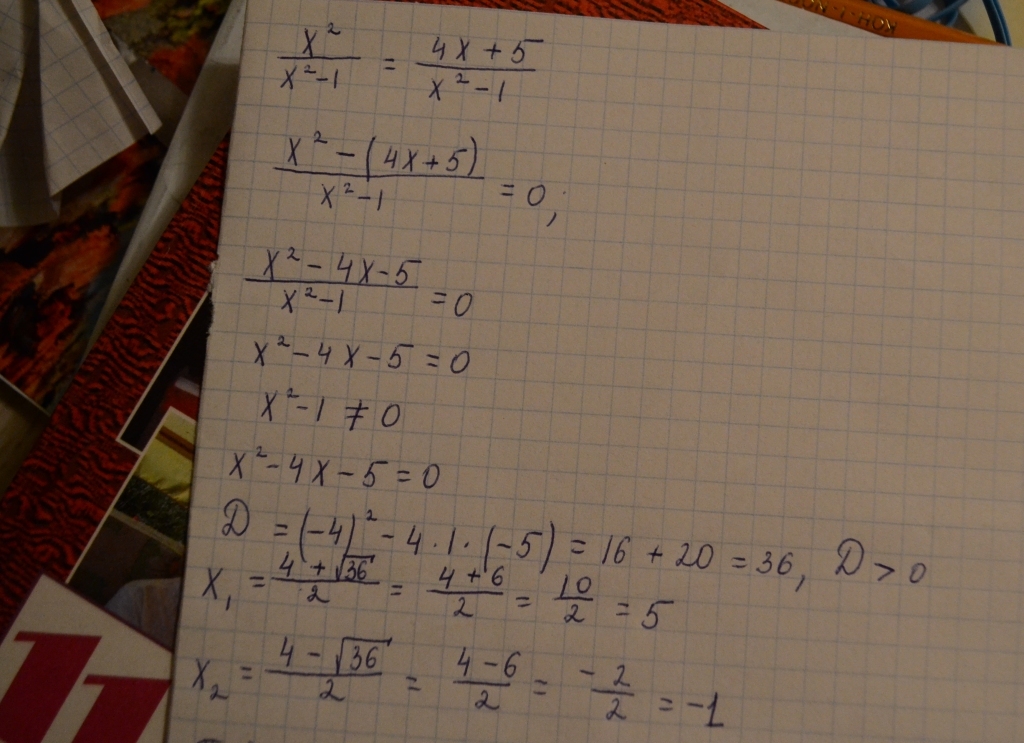 x²/(x²-1) = (4x+5)/(x²-1)
(x²-(4x+5))/(x²-1) = 0;
(x²-4x-5)/(x²-1) = 0
x²-4x-5=0
x²-1≠0
x²-4x-5=0
D = (-4)²-4·1·(-5) = 16+20=36, D>0
x₁ = (4+√36)/2 = (4+6)/2 = 10/2 = 5
x₂ = (4-√36)/2 = (4-6)/2 = -2/2 = -1
11